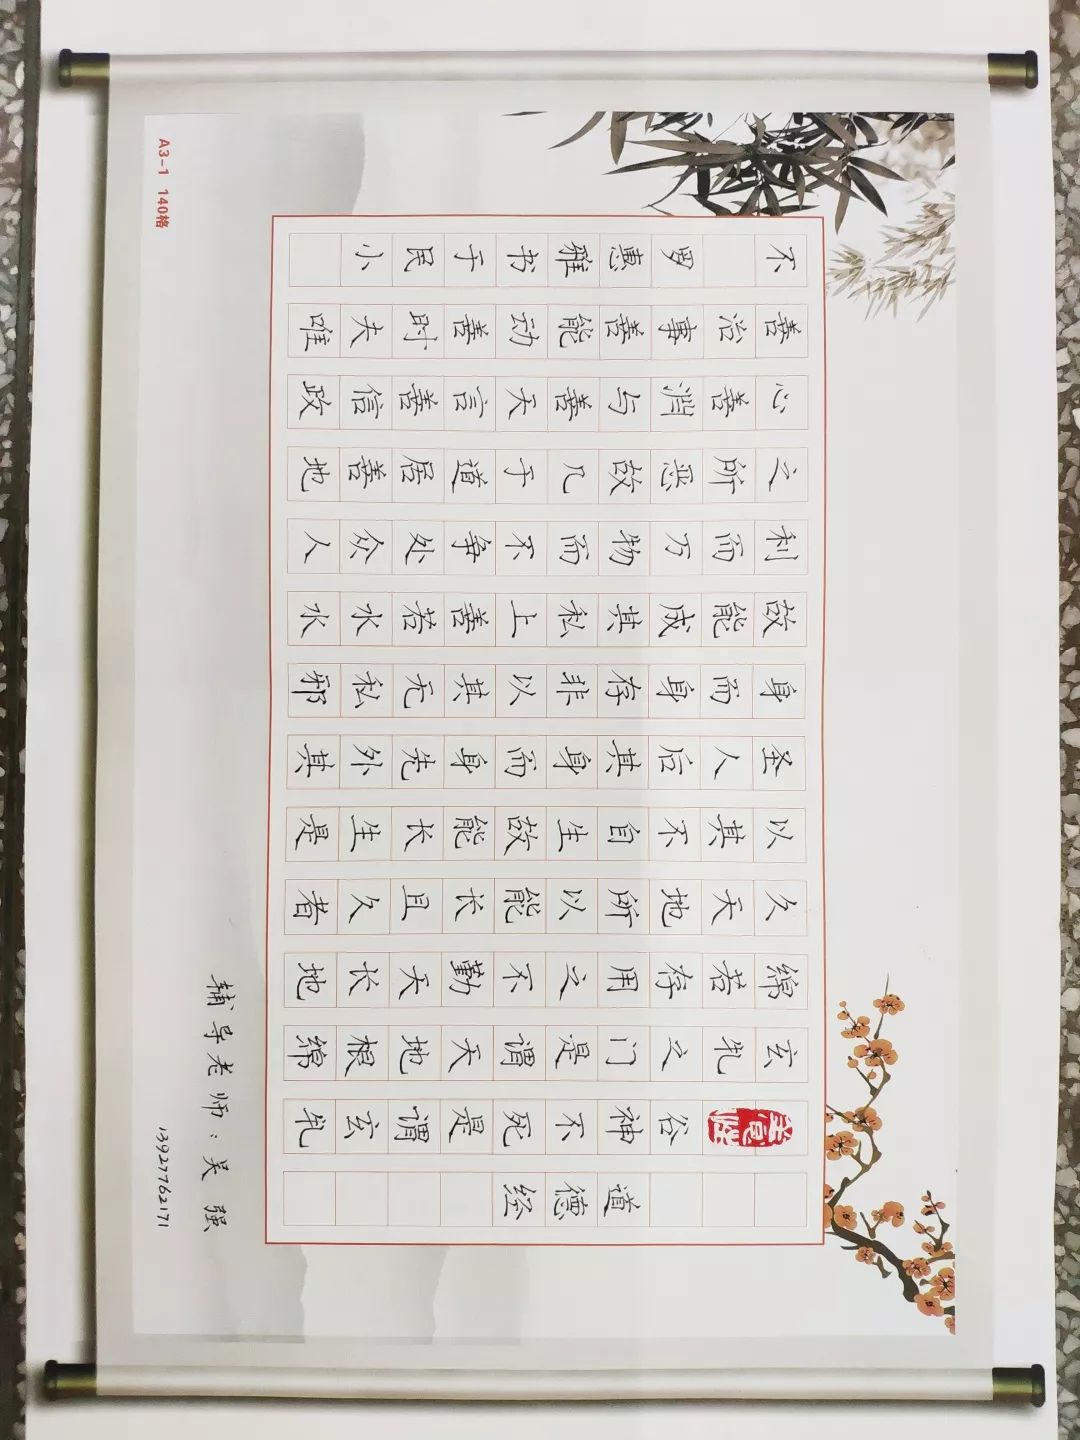 道德经
谷神不死是谓玄牝
玄牝之门是谓天地根绵
绵若存用之不勤天长地
久天地所以能长且久者
以其不自生故能长生是
圣人后其身而身先外其
身而身存非以其无私邪
故能成其私上善若水水
利而万物而不争处众人
之所恶故几于道居善地
心善渊与善天言善信政
善治事善能动善时夫唯
不 罗惠雅书于民小
辅导老师:吴强
13927762171
A3-1 140格